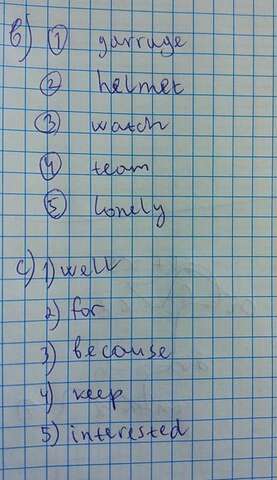 b) ① garrage
② helmet
③ watch
④ team
⑤ lonely
c) 1) well
2) for
3) because
4) keep
5) interested